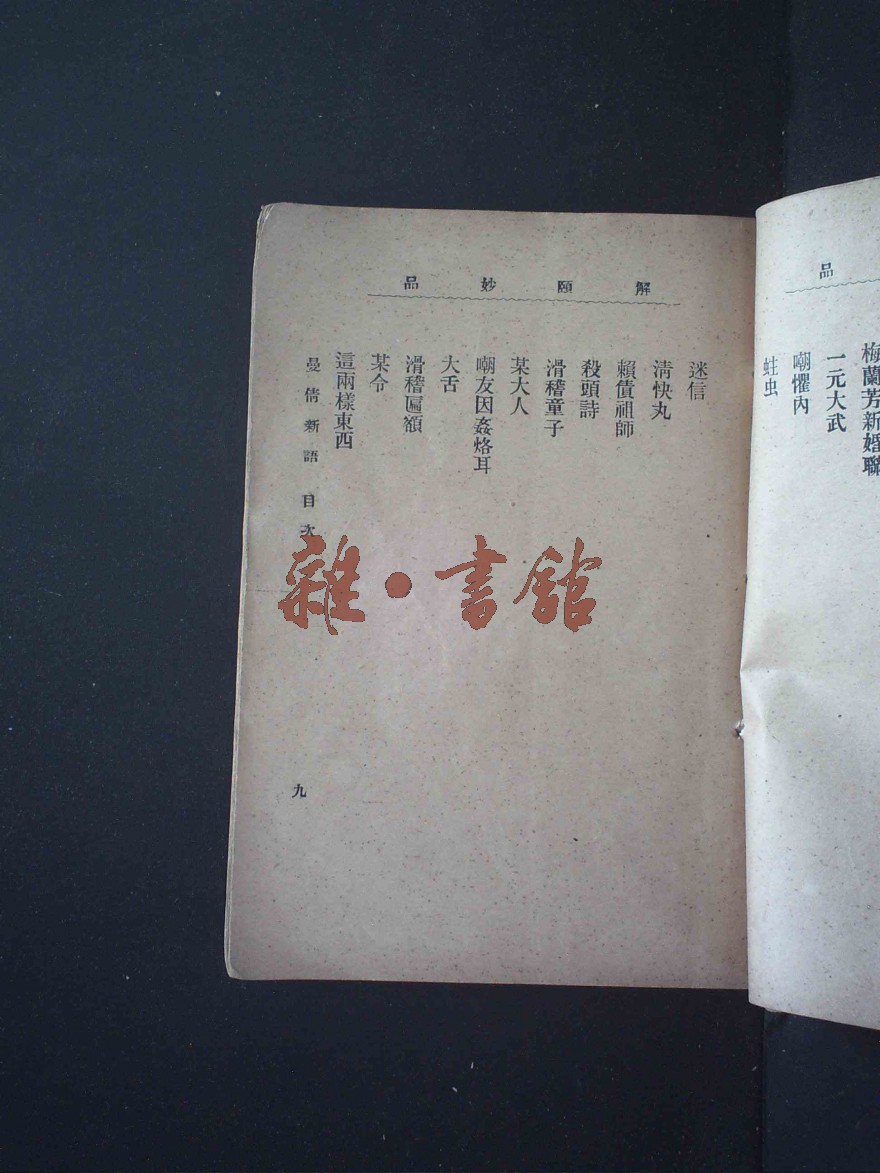 品
梅蘭芳新婚聯
一元大武
嘲懼內
蛀虫
解頤妙品
迷信
清快丸
賴債祖師
殺頭詩
滑稽童子
某大人
嘲友因姦烙耳
大舌
滑稽匾額
某令
這兩樣東西
曼倩新語 目次
九
雜·書館